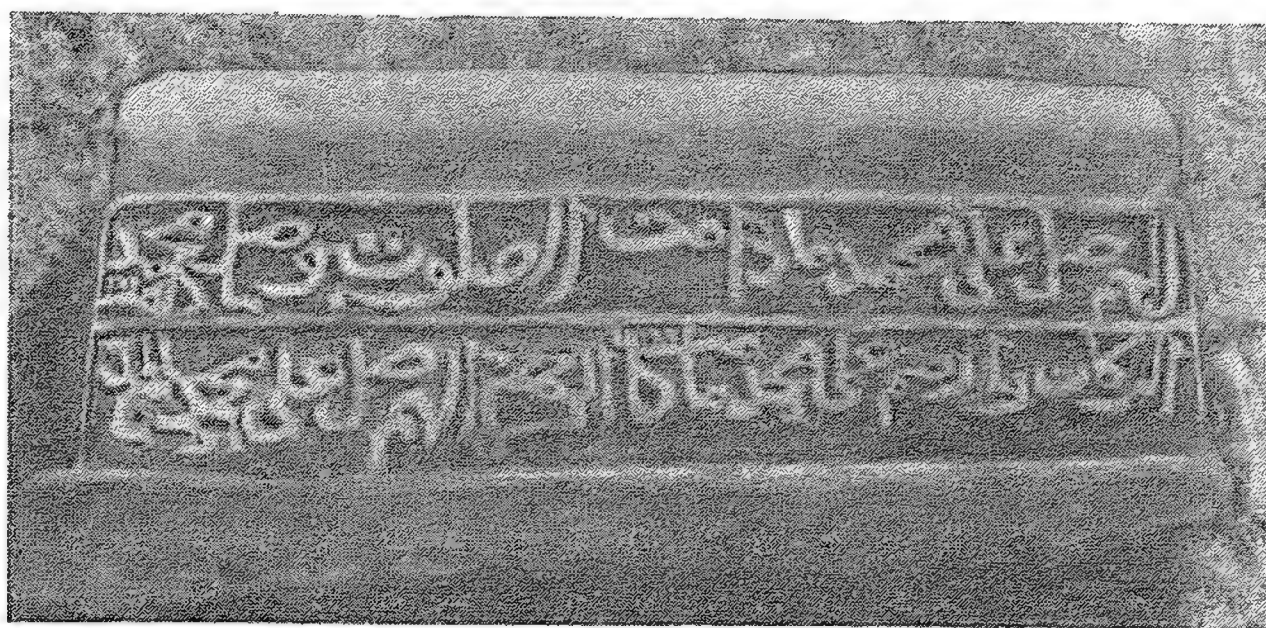 اللهم صل على محمد ما دامت الصلوت وصل على محمد
البركات وارحم محمد ما دامت الرحمة اللهم صل على